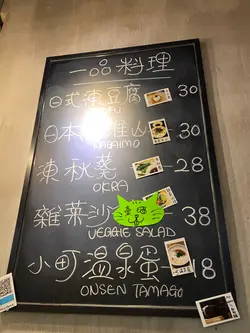 一品料理
日式凍豆腐 30
日本 淮山 30
NAGAIMO
凍秋葵 -28
OKRA
雜菜沙 - 38
VEGGIE SALAD
小町溫泉蛋 - 18
ONSEN TAMAGO